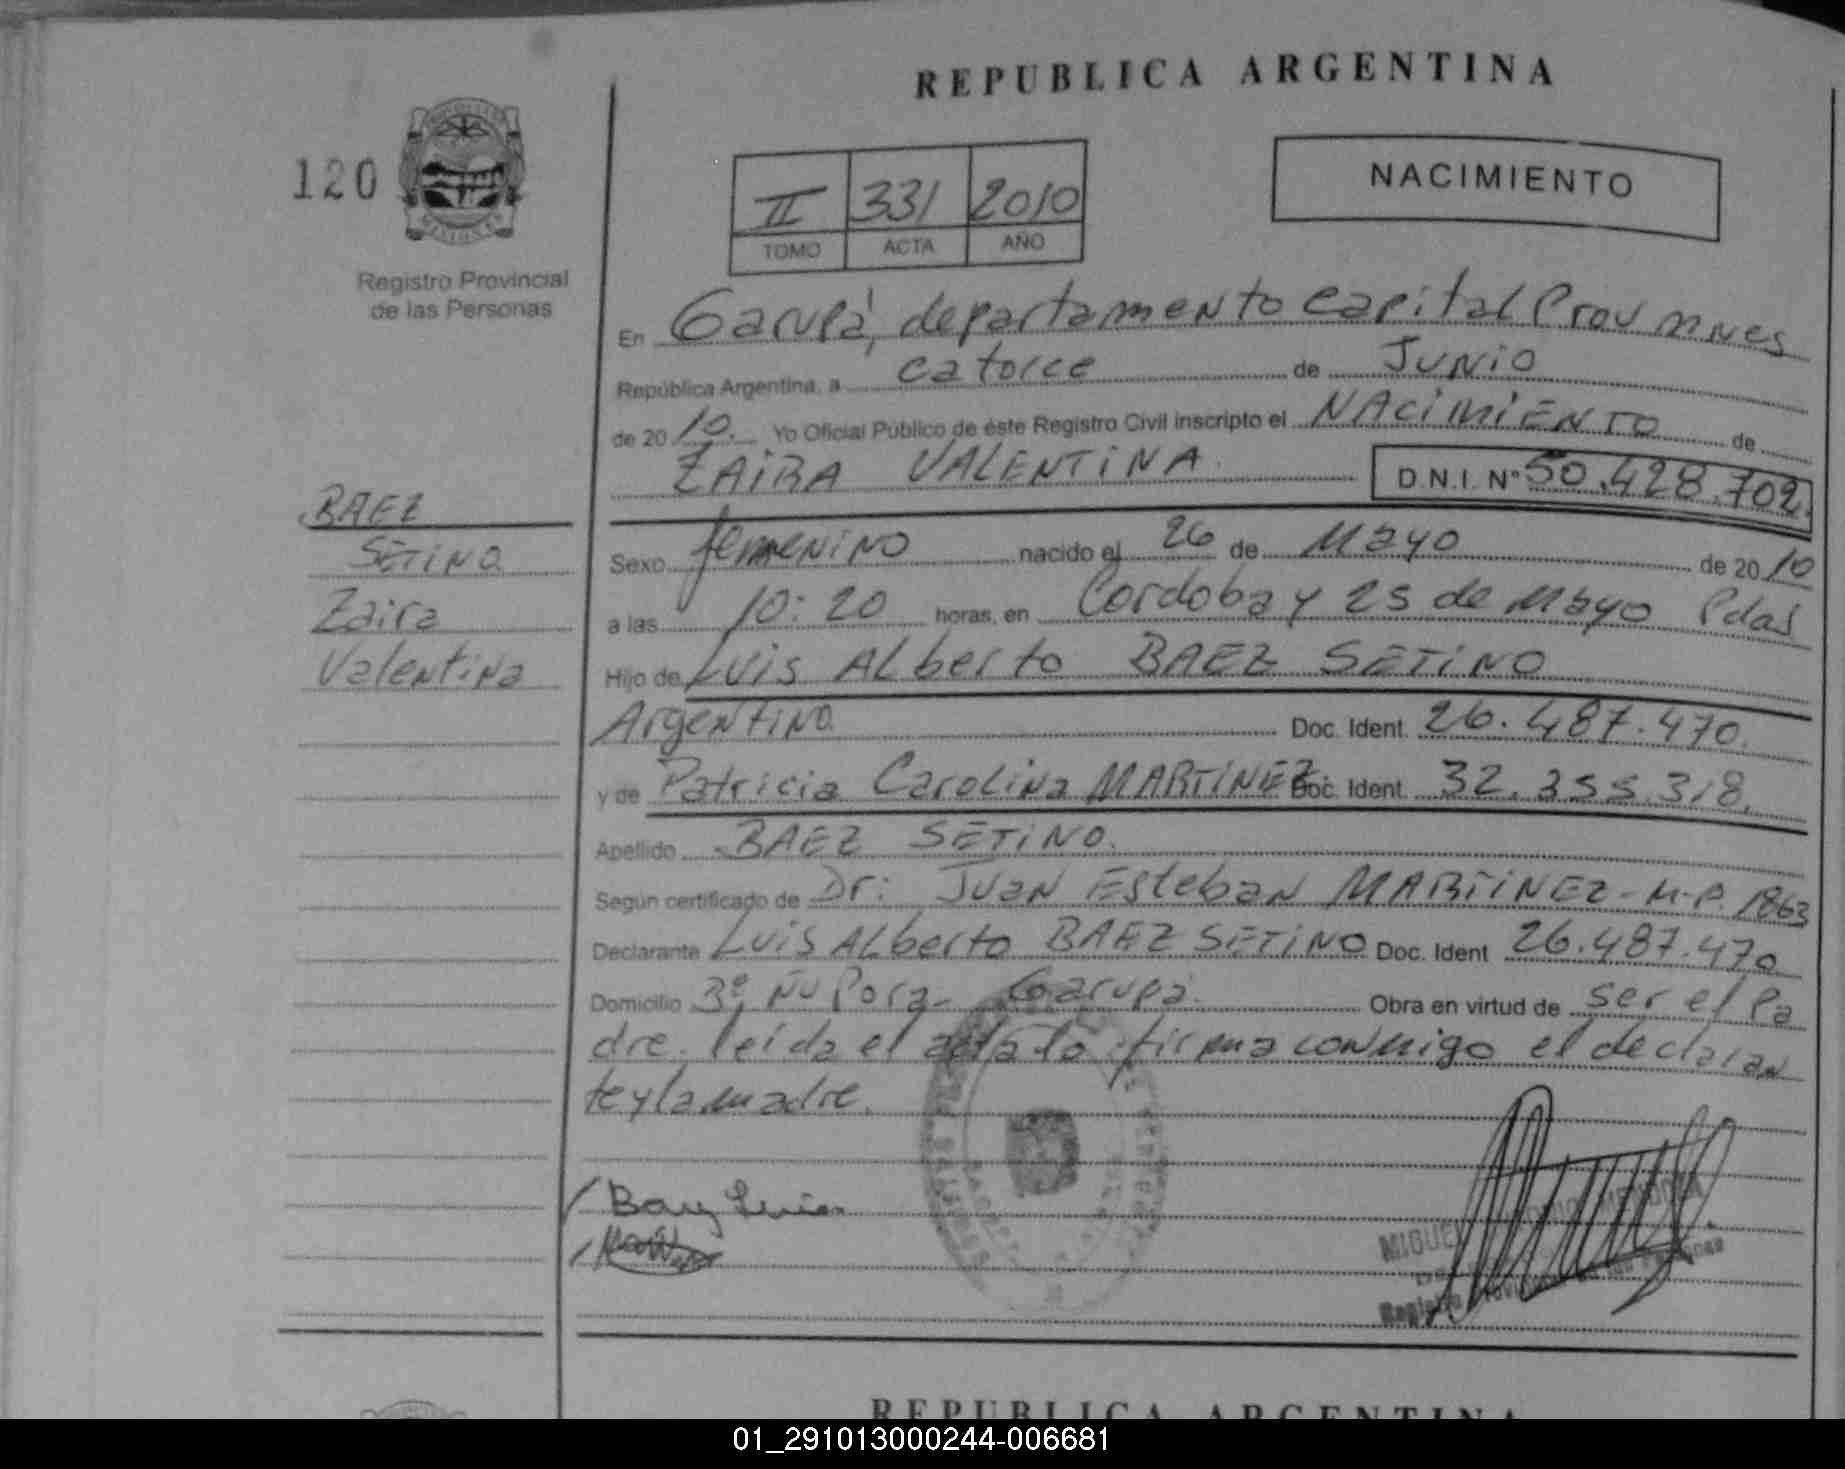 REPUBLICA ARGENTINA
120
NACIMIENTO
II 331 2010
TOMO ACTA AÑO
Registro Provincial
de las Personas
En Garupá, departamento Capital Prov mnes
República Argentina, a catorce de Junio
de 20 10. Yo Oficial Público de éste Registro Civil inscripto el NACIMIENTO de
ZAIRA VALENTINA. D.N.I. Nº 50.428.702.
BAEZ
SETINO
Zaira
Valentina
Sexo femenino nacido el 26 de Mayo de 20 10
a las 10:20 horas, en Cordoba y 25 de Mayo Pdas
Hijo de Luis Alberto BAEZ SETINO
Argentino. Doc. Ident. 26.487.470.
y de Patricia Carolina MARTINEZ Doc. Ident. 32.355.318.
Apellido BAEZ SETINO.
Según certificado de Dr: Juan Esteban MARTINEZ - M.P. 1863
Declarante Luis Alberto BAEZ SETINO Doc. Ident 26.487.470
Domicilio 3º Ñu Pora - Garupá. Obra en virtud de ser el Pa
dre. leída el acta la firma conmigo el declaran
te y la madre.
Baez Luis
MIGUEL MENDOZA
Registro Provincial de las Personas
REPUBLICA ARGENTINA
01_291013000244-006681